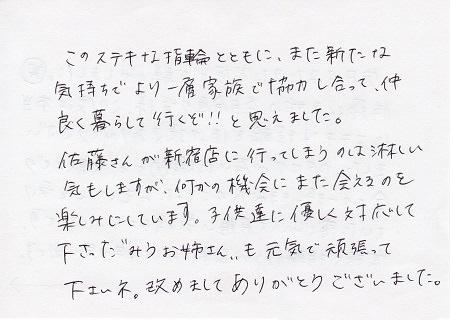 このステキな指輪とともに、また新たな
気持ちでより一層家族で協力し合って、仲
良く暮らして行くぞ!!と思えました。
佐藤さんが新宿店に行ってしまうのは淋しい
気もしますが、何かの機会にまた会えるのを
楽しみにしています。子供達に優しく対応して
下さった“みうお姉さん„も元気で頑張って
下さいネ。改めましてありがとうございました。